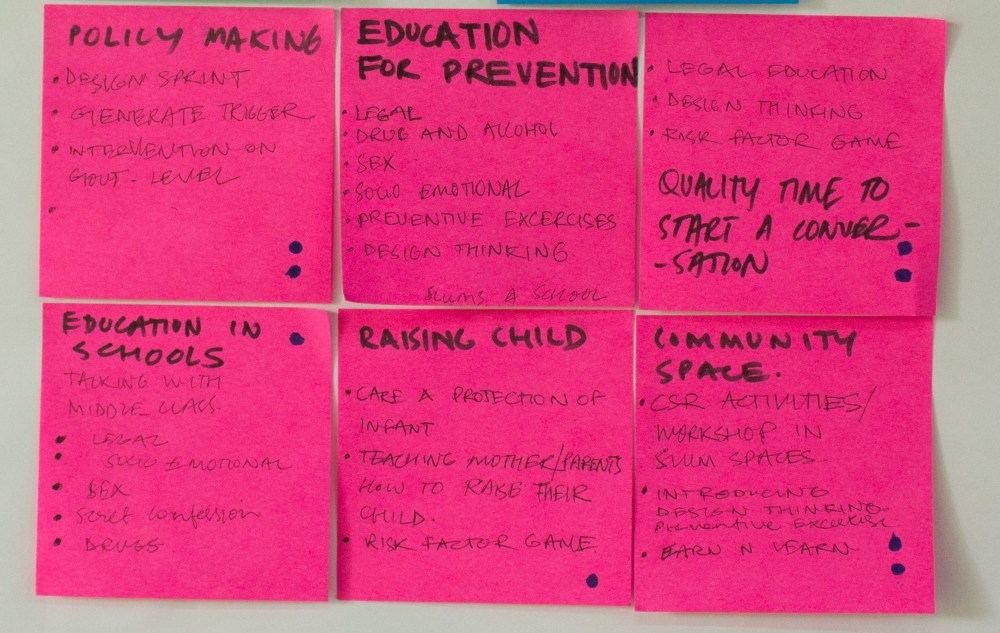 POLICY MAKING
• DESIGN SPRINT
• GENERATE TRIGGER
• INTERVENTION ON
GOVT. LEVEL
•
EDUCATION
FOR PREVENTION
• LEGAL
• DRUG AND ALCOHOL
• SEX
• SOCIO EMOTIONAL
• PREVENTIVE EXCERCISES
• DESIGN THINKING
SLUMS & SCHOOL
• LEGAL EDUCATION
• DESIGN THINKING
• RISK FACTOR GAME
QUALITY TIME TO
START A CONVER-
-SATION
EDUCATION IN
SCHOOLS
TALKING WITH
MIDDLE CLASS
• LEGAL
• SOCIO EMOTIONAL
• SEX
• Secret Confession
• DRUGS
RAISING CHILD
• CARE & PROTECTION OF
INFANT
• TEACHING MOTHER/PARENTS
HOW TO RAISE THEIR
CHILD.
• RISK FACTOR GAME
COMMUNITY
SPACE.
• CSR ACTIVITIES/
WORKSHOP IN
SLUM SPACES
• INTRODUCING
DESIGN THINKING.
Preventive Excercise
• EARN N LEARN